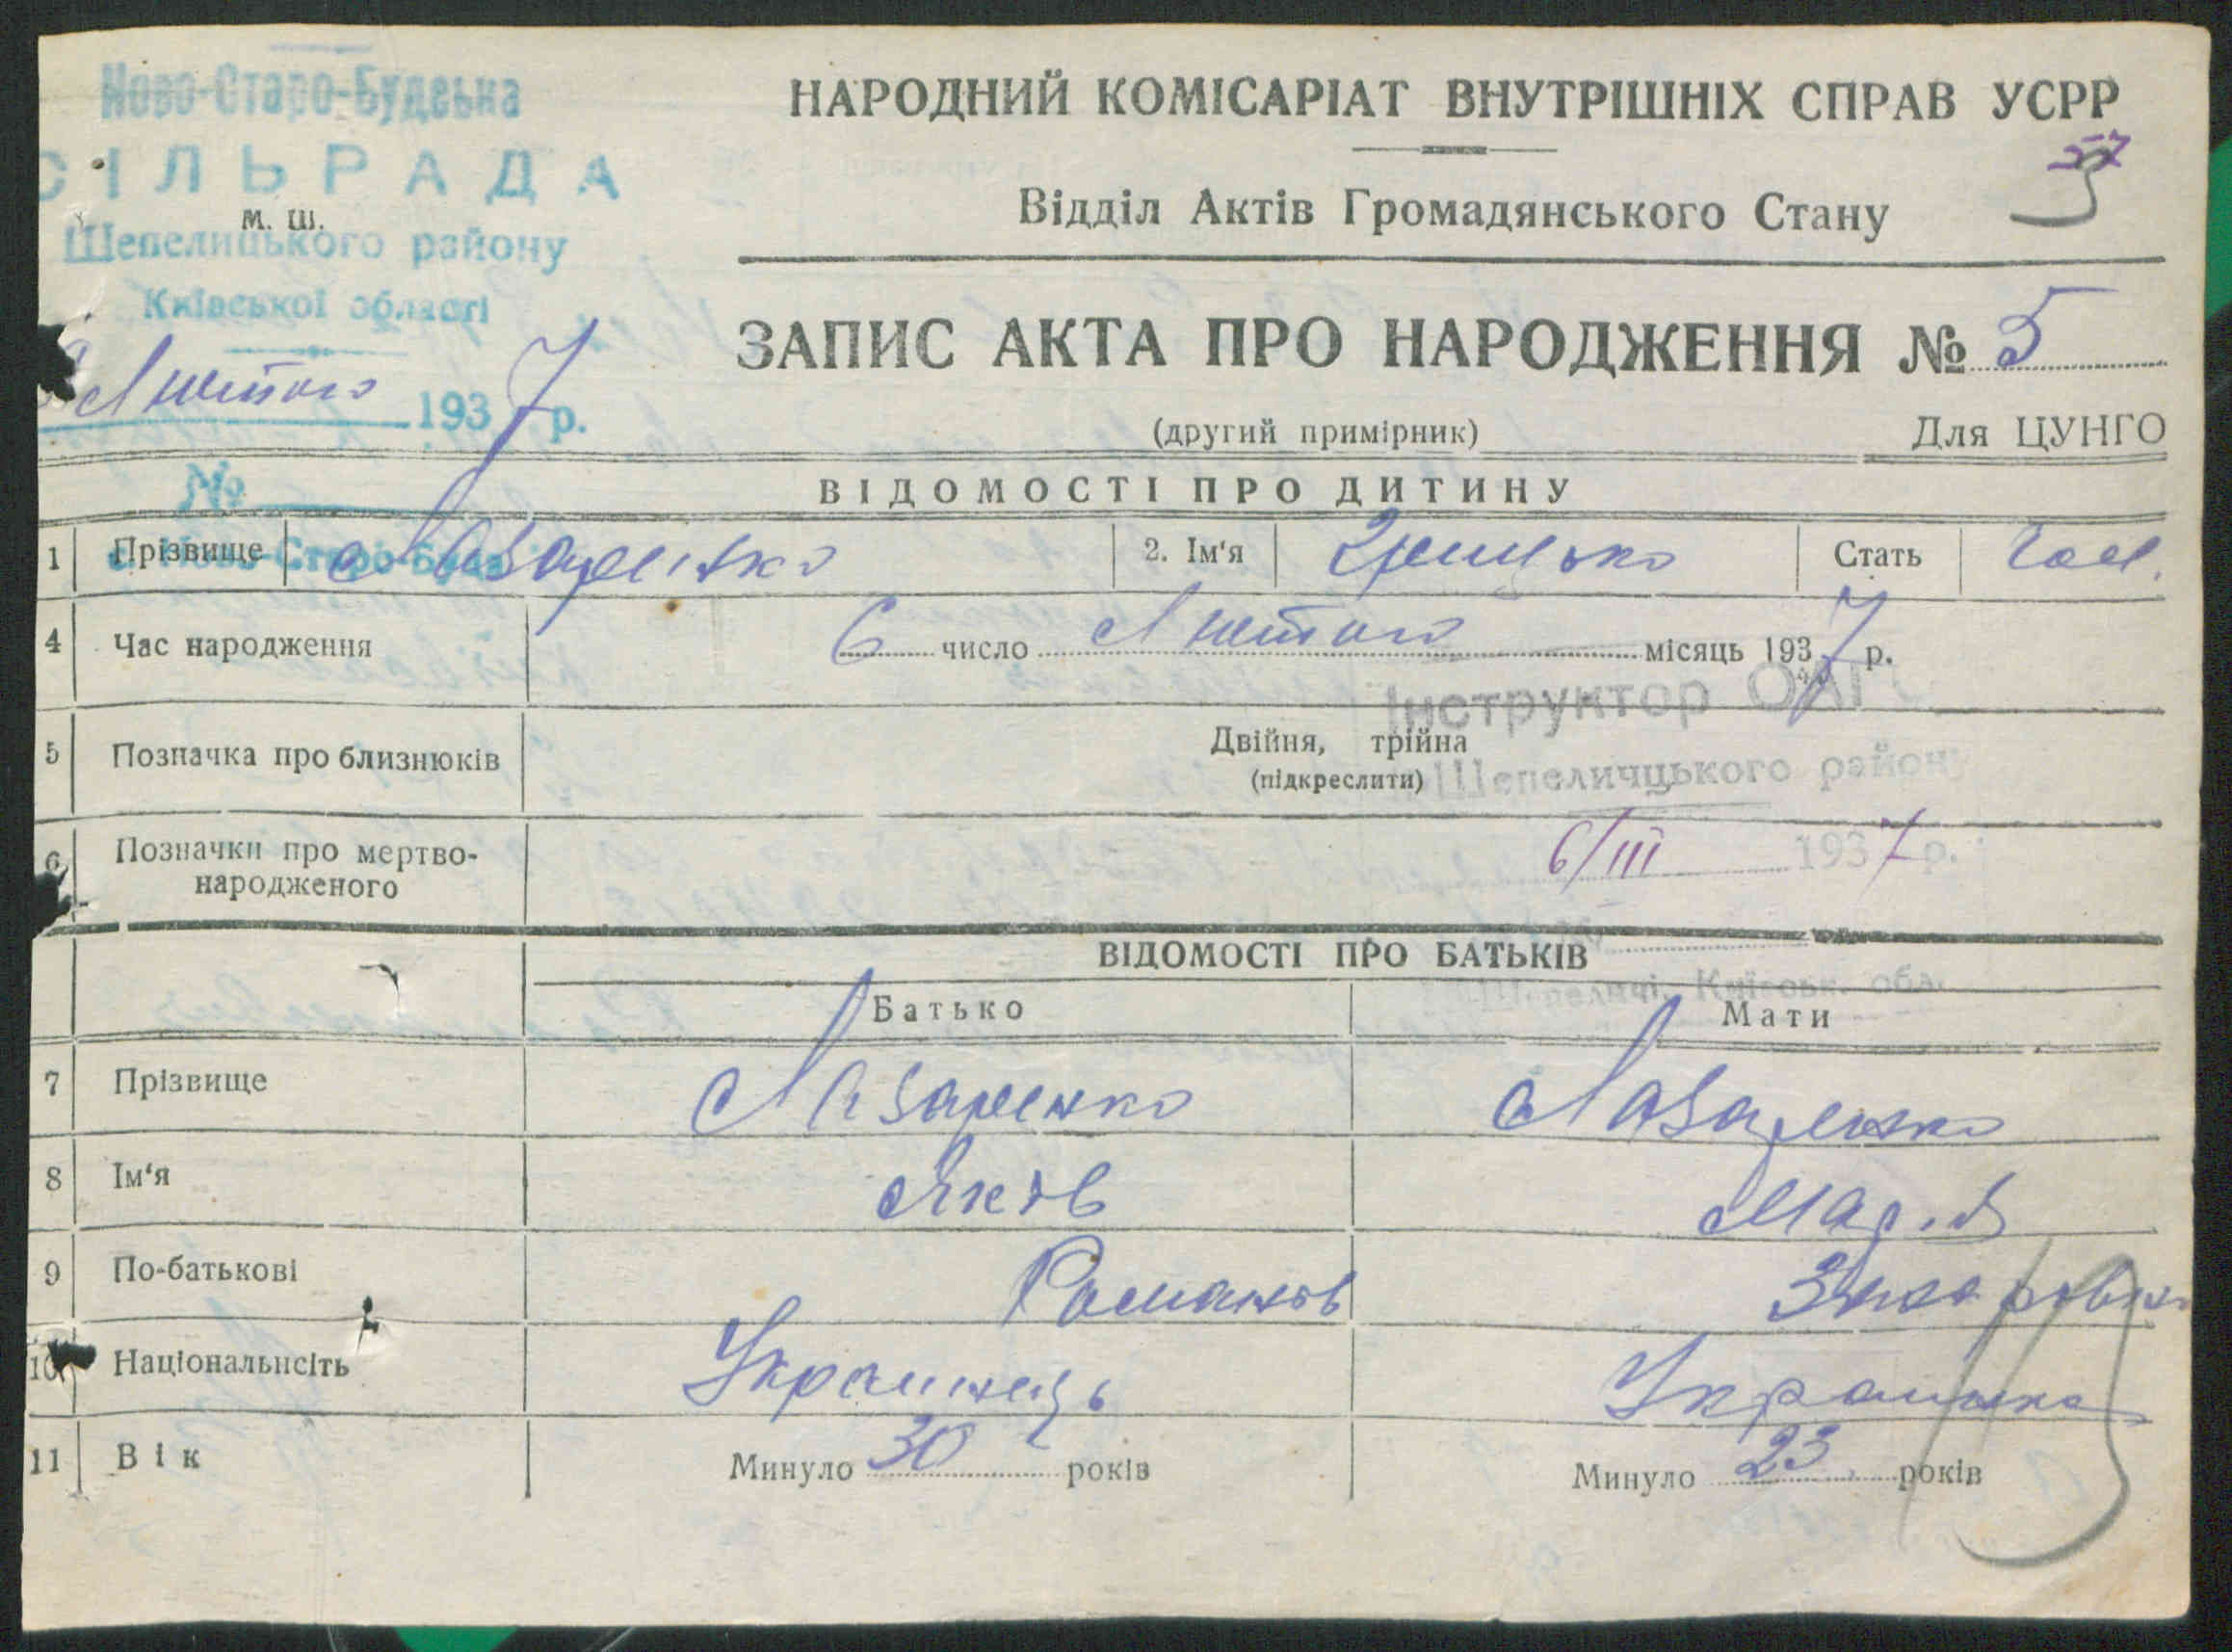 Ново-Старо-Будська
СІЛЬРАДА
м. ш.
Шепелицького району
Київської області
Лютого 1937 р.
№
НАРОДНИЙ КОМІСАРІАТ ВНУТРІШНІХ СПРАВ УСРР
57
Відділ Актів Громадянського Стану
ЗАПИС АКТА ПРО НАРОДЖЕННЯ № 5
(другий примірник)
Для ЦУНГО
ВІДОМОСТІ ПРО ДИТИНУ
1 Прізвище Лазаренко 2. Ім'я Грицько Стать Чол.
4 Час народження 6 число Лютого місяць 1937 р.
Інструктор ОАГС
5 Позначка про близнюків Двійня, трійна
(підкреслити)
Шепеличцького району
6 Позначки про мертво-
народженого
6/III 1937 р.
ВІДОМОСТІ ПРО БАТЬКІВ
Шепеличі, Київськ. обл.
Батько Мати
7 Прізвище Лазаренко Лазаренко
8 Ім'я Яків Марія
9 По-батькові Романов
10 Національнсіть Украінець Украінка
11 Вік Минуло 30 років Минуло 23 років